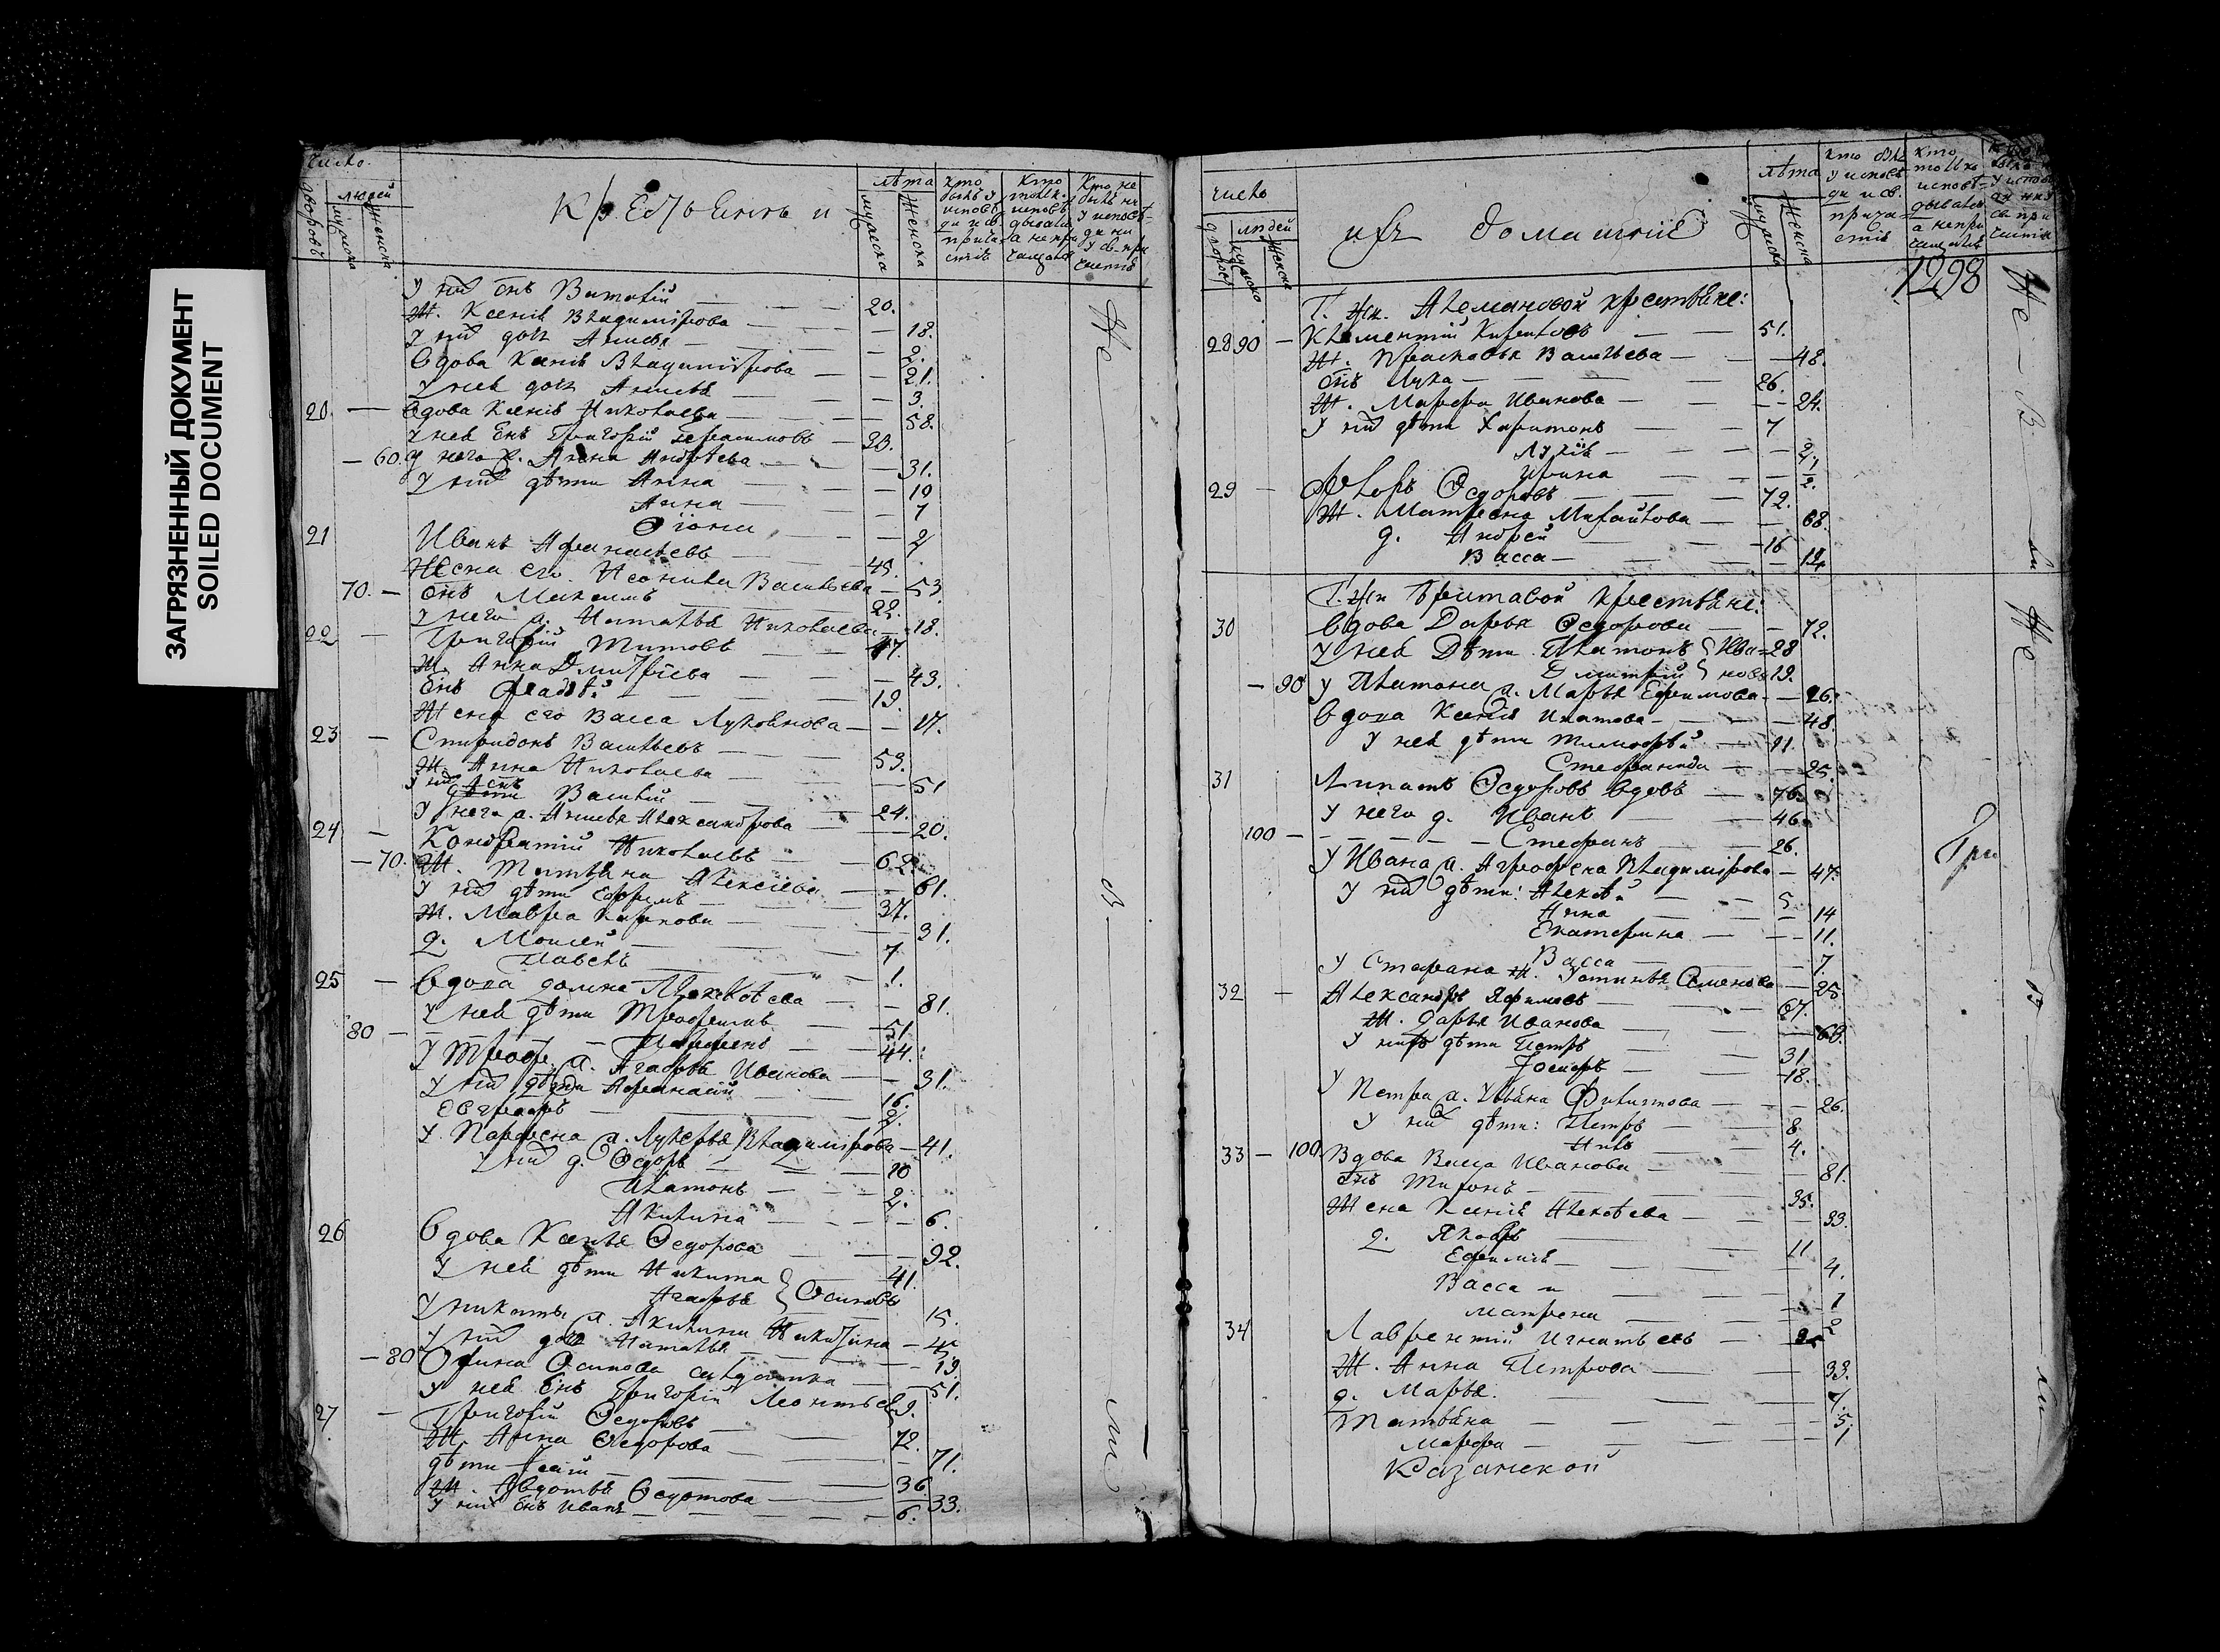 ЗАГРЯЗНЕННЫЙ ДОКУМЕНТ
SOILED DOCUMENT
число.
дворовъ
людей
мужеска
женска.
Крестьяне и
лѣта
мужеска
женска
кто былъ у исповѣди и св. причастія
Кто только исповѣдывался а не причащался
Кто не былъ ни у исповѣди ни у св. причастія
У них снъ Виталій — 20.
Ж. Ксенія Владимірова — 18.
У них дочь Анисья — 2.
Вдова Ксенія Владимірова — 21.
У нея дочь Анисья — 3.
20. — Вдова Ксенія Николаева — 58.
У нея снъ Григорій Герасимовъ — 33.
— 60. У него ж. Анна Андрѣева — 31.
У них дѣти Анна — 10
Анна — 7
— 2
21 Иванъ Афанасьевъ — 45.
Жена его Васильева — 53
70. — снъ Максимъ — 22.
У него ж. Наталья Николаева — 18.
22 — Григорій Титовъ — 47.
Ж. Анна Дмитріева — 43.
снъ Фадѣй — 19.
Жена его Васса Лукьянова — 17.
23 — Спиридонъ Васильевъ — 53.
Ж. Анна Николаева — 51
У них снъ Василій — 24.
У него ж. Анисья Александрова — 20.
24 — Кондратій Николаевъ — 62.
— 70. Ж. Татьяна Алексіева — 61.
У них дѣти Ефремъ — 37.
Ж. Мавра Карпова — 31.
д. Моисей — 7
Павелъ — 1.
25 — Вдова Алексѣева — 81.
У ней дѣти Трофимъ — 51.
80 — Парфенъ — 44.
У Троф. ж. Агафья Иванова — 31.
У них дѣти Афанасій — 16.
Евграфъ — 9.
У Парфена ж. Лукерья Владимірова — 41.
У них д. Ѳедоръ — 10
Платонъ — 2.
Акилина — 6.
26 Вдова Ксенья Ѳедорова — 92.
У ней дѣти Никита — 41.
Агафья } Осиповы 15.
У Никиты ж. Акилина Никитина — 45
У них дочь Наталья — 19.
— 80 Ѳекла Осипова солдатка — 51.
У ней снъ Григорій Леонтьевъ 9.
27 — Григорій Ѳедоровъ — 72.
Ж. Анна Ѳедорова — 71.
дѣти Исаій — 36
Ж. Авдотья Ѳедотова — 33.
У них снъ Иванъ — 6.
Не
в
ш
число
дворовъ
людей
мужеска
женска
ихъ домашніе
лѣта
мужеска
женска
кто былъ у исповѣди и св. причастія
кто только исповѣдывался а не причащался
у исповѣди ни у св. причастія
1298
Г. жи. Алемановой крестьяне:
28 90 — Климентій Кириловъ — 51.
Ж. Прасковья Васильева — 48.
снъ Лука — 26.
Ж. Марфа Иванова — 24.
У них дѣти Харитонъ — 7
Лукія — 4
Ирина — 2.
29 — Флоръ Ѳедоровъ — 72.
Ж. Матрена Михайлова — 68.
д. Андрей — 16
Васса — 14
Г. жи крестьяне:
30 Вдова Дарья Ѳедорова — 72.
У ней Дѣти Платонъ } Ива= 28
Дмитрій } новы 19.
— 90 У Платона ж. Марья Ефимова — 26.
Вдова Ксенія Ипатова — 48.
У ней дѣти Тимофѣй — 11.
Стефанида — 25.
31 Липатъ Ѳедоровъ вдовъ — 76.
У него д. Иванъ — 46.
100 — Стефанъ — 26.
У Ивана ж. Аграфена Владимірова — 47.
У них дѣти: Алексѣй — 5.
Анна — 14
Екатерина — 11.
Васса — 7.
У Стефана ж. Устинья Семенова — 25
32 — Александръ Яфимовъ — 67.
Ж. Дарья Иванова — 60.
У нихъ дѣти Петръ — 31.
Іосифъ — 18.
У Петра ж. Ульяна Филипова — 26.
У них дѣти: Петръ — 8
Ниѣ — 4.
33 — 100. Вдова Васса Иванова — 81.
снъ Миронъ — 35.
Жена Ксенія Алексѣева — 33.
д. Яковъ — 11
Ефимія — 4.
Васса и — 1
Матрена — 2
34 Лаврентій Игнатьевъ —
Ж. Анна Петрова — 33.
д. Марья. — 7.
Татьяна — 5,
Марфа — 1
Казанской
Не
в
Не
Три